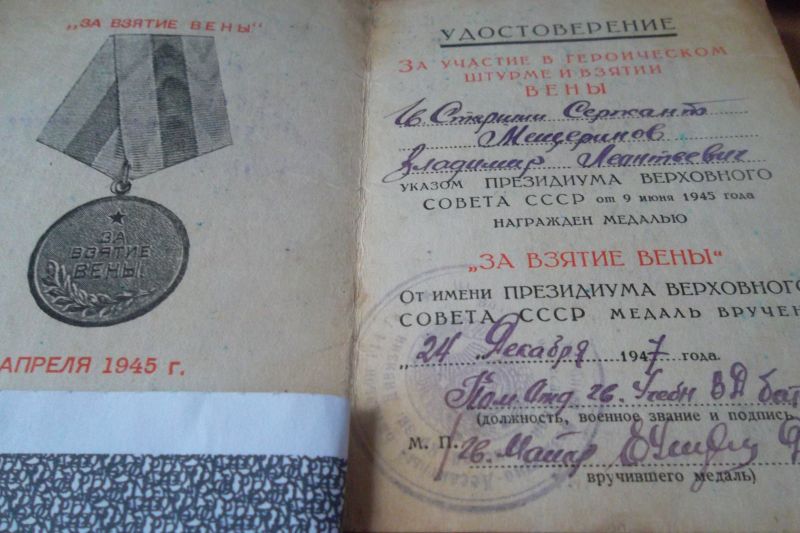 „ЗА ВЗЯТИЕ ВЕНЫ"
ЗА
ВЗЯТИЕ
ВЕНЫ
АПРЕЛЯ 1945 г.
УДОСТОВЕРЕНИЕ
ЗА УЧАСТИЕ В ГЕРОИЧЕСКОМ
ШТУРМЕ И ВЗЯТИИ
ВЕНЫ
Гв. Старший Сержант
Мещеринов
Владимир Леонтьевич
УКАЗОМ ПРЕЗИДИУМА ВЕРХОВНОГО
СОВЕТА СССР от 9 июня 1945 года
НАГРАЖДЕН МЕДАЛЬЮ
„ЗА ВЗЯТИЕ ВЕНЫ"
От имени ПРЕЗИДИУМА ВЕРХОВНОГО
СОВЕТА СССР МЕДАЛЬ ВРУЧЕН
„24" Декабря 1947 года.
гв. Учебн бат
(должность, военное звание и подпись
М. П. гв. Майор
вручившего медаль)